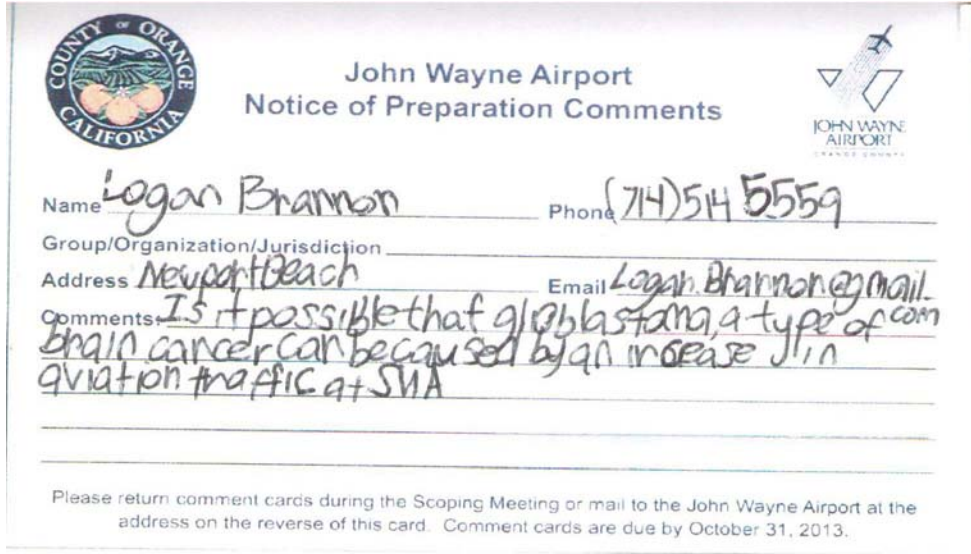 COUNTY OF ORANGE
CALIFORNIA
John Wayne Airport
Notice of Preparation Comments
JOHN WAYNE
AIRPORT
ORANGE COUNTY
Name Logan Brannon Phone (714)514 5559
Group/Organization/Jurisdiction
Address Newport Beach Email Logan.Brannon@gmail.com
Comments: Is it possible that glioblastoma, a type of
brain cancer can be caused by an increase in
aviation traffic at SNA
Please return comment cards during the Scoping Meeting or mail to the John Wayne Airport at the
address on the reverse of this card. Comment cards are due by October 31, 2013.